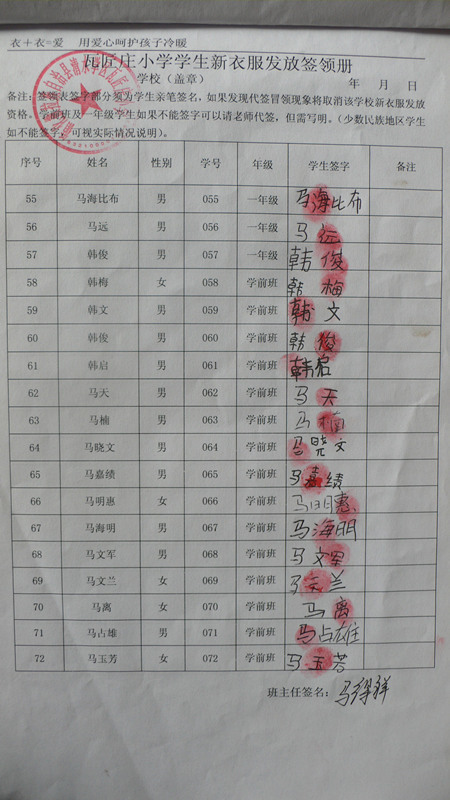 衣+衣=爱 用爱心呵护孩子冷暖
瓦匠庄小学学生新衣服发放签领册
学校（盖章） 年 月 日
备注：签领表签字部分须为学生亲笔签名，如果发现代签冒领现象将取消该学校新衣服发放
资格。学前班及一年级学生如果不能签字可以请老师代签，但需写明。（少数民族地区学生
如不能签字，可视实际情况说明）。
序号 姓名 性别 学号 年级 学生签字 备注
55 马海比布 男 055 一年级 马海比布
56 马远 男 056 一年级 马远
57 韩俊 男 057 一年级 韩俊
58 韩梅 女 058 学前班 韩梅
59 韩文 男 059 学前班 韩文
60 韩俊 男 060 学前班 韩俊
61 韩启 男 061 学前班 韩启
62 马天 男 062 学前班 马天
63 马楠 男 063 学前班 马楠
64 马晓文 男 064 学前班 马晓文
65 马嘉绩 男 065 学前班 马嘉绩
66 马明惠 女 066 学前班 马明惠
67 马海明 男 067 学前班 马海明
68 马文军 男 068 学前班 马文军
69 马文兰 女 069 学前班 马文兰
70 马离 女 070 学前班 马离
71 马占雄 男 071 学前班 马占雄
72 马玉芳 女 072 学前班 马玉芳
班主任签名：马祥